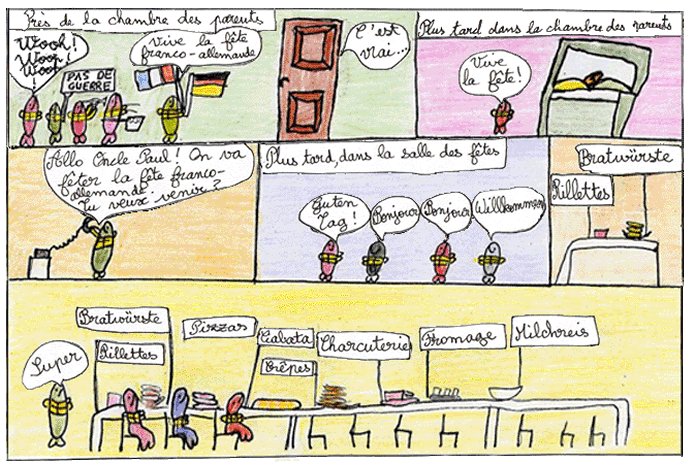 Près de la chambre des parents
Wooh!
Woop!
Woop
!
PAS DE
GUERRE
Vive la fête
franco-allemande
C'est
vrai...
Plus tard dans la chambre des parents
Vive
la fête!
Allo Oncle Paul! On va
fêter la fête franco-
allemande.
Tu veux venir?
Plus tard, dans la salle des fêtes
Guten
Tag!
Bonjour
Bonjour
Willkommen
Bratwürste
Rillettes
Super
Bratwürste
Rillettes
Pizzas
Ciabata
Crêpes
Charcuterie
Fromage
Milchreis